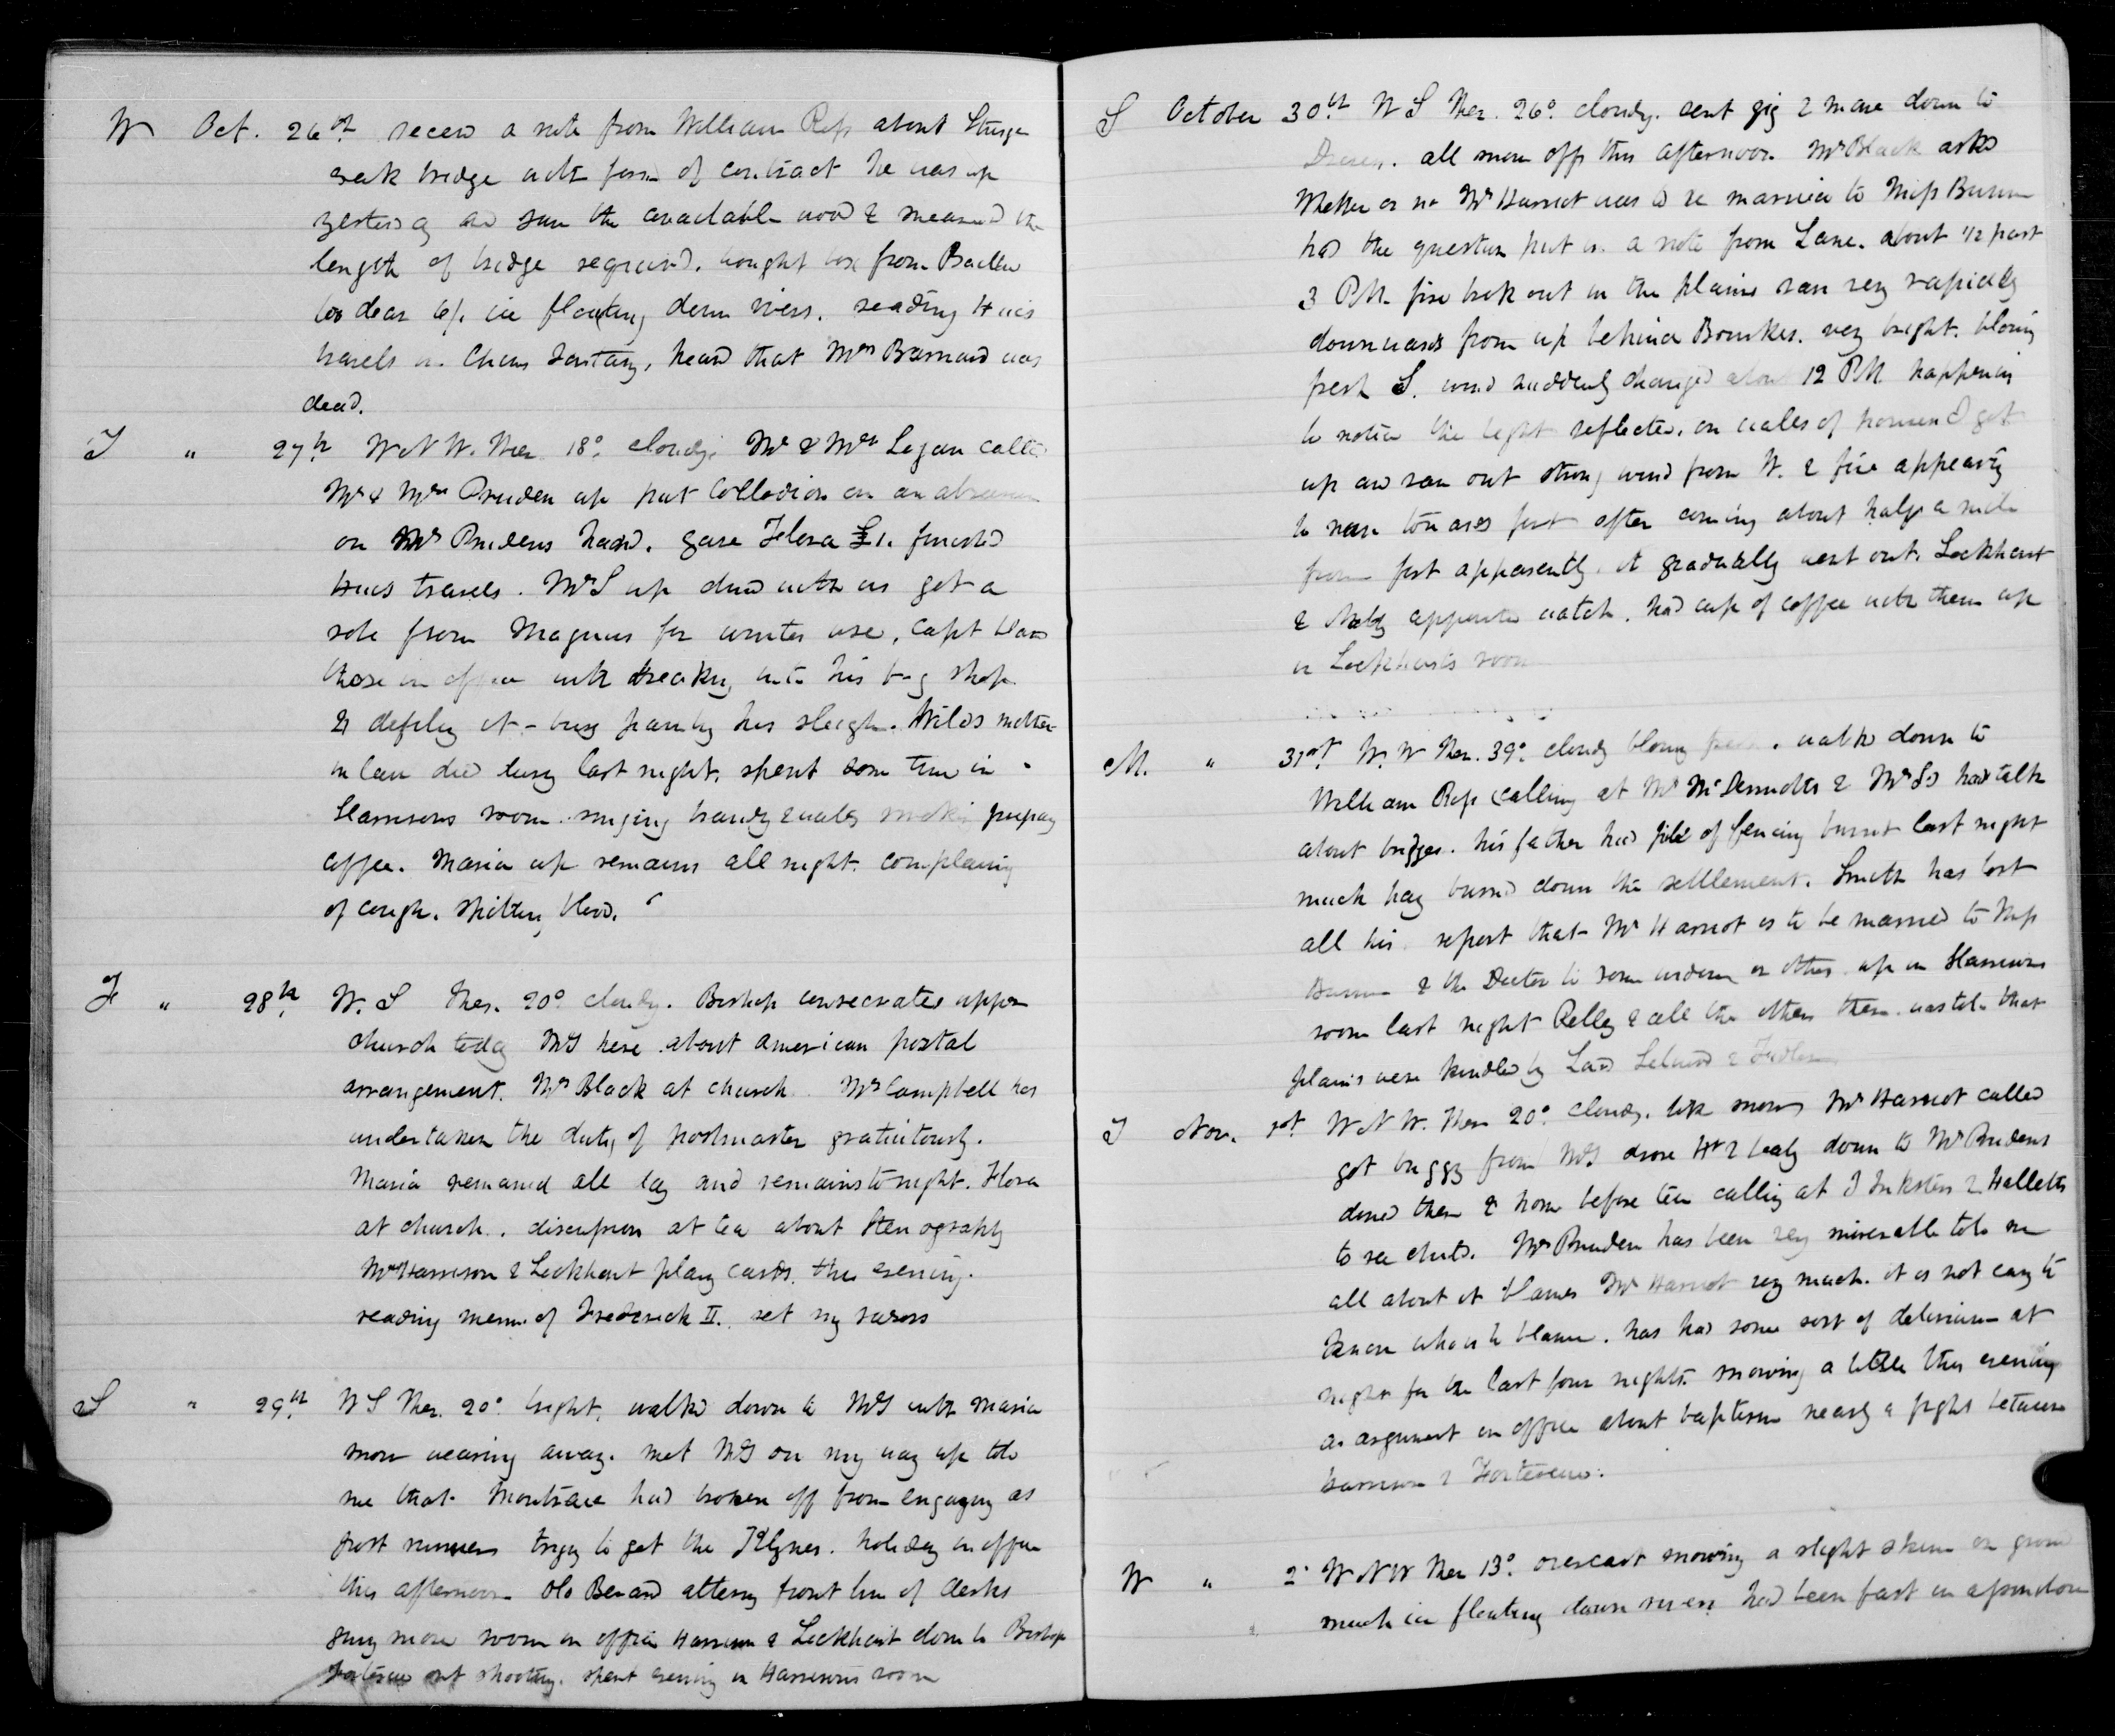 W Oct. 26th recevd a note from William Ross about Sturgn
creek bridge with form of contract he was up
yesterdg and saw the available wood & measured the
length of bridge required. bought box from Baillie
too dear 6/. ice floating down river. reading Hucs
travels in Chins Tartary, heard that Mrs Barnard was
dead.
T " 27th W N W. Ther. 18° cloudy. Mr & Mrs Logan called
Mr & Mrs Pruden up put Collodion on an
on Mrs Prudens hand. gave Flora £1. finished
Hucs travels. McS up dined with us got a
robe from Magnus for winter use. Capt
those in office with breaking into his shop
& defiling it - busy painting his sleigh. Wilds mother
in law died last night. spent some time in
Harrisons room singing brandy & water smoking
coffee. Maria up remains all night. complaing
of cough. spitting blood.
F " 28th W. S Ther. 20° cloudy. Bishop consecrates upper
church todg McS here about american postal
arrangement. Mr Black at church. Mr Campbell has
undertaken the duty of postmaster gratuitously.
Maria remained all day and remains tonight. Flora
at church. discussion at tea about Stenography
Mr Harrison & Lockhart play cards this evening.
reading mem. of Frederick II. set my razors
S " 29th W S Ther. 20° bright. walked down to McS with Maria
snow wearing away. met McS on my way up told
me that had broken off from engaging as
post runners trying to get the Klynes. holiday in office
this afternoon Old Berard altering front line of desks
givg more room in office Harrison & Lockhart down to Bishop
out shooting. spent evening in Harrisons room
S October 30th W S Ther. 26° cloudy. sent gig & mare down to
all snow off this afternoon. Mr Black asks
Whether or no Mr Harriot was to be married to Miss Bunn
had the question put in a note from Lane. about 1/2 past
3 PM. fire broke out in the plains ran very rapidly
downwards from up behind Bourkes. very bright. blowing
fresh S. wind suddenly changed about 12 PM. happening
to notice the light reflected on walls of houses I got
up and ran out strong wind from W. & fire appearing
to near towards fort after coming about half a mile
from fort apparently it gradually went out. Lockhart
& appointed watch. had cup of coffee with them up
in Lockharts room
M. " 31st. W. W Ther. 39° cloudy blowing fresh. walked down to
William Ross calling at Mr McDermotts & McSs had talk
about bridges. his father had field of fencing burnt last night
much hay burned down the settlement. Smith has lost
all his. report that Mr Harriot is to be married to Miss
Bunn & the Doctor to some widow or other. up in Harrisons
room last night Reilly & all the others there. was told that
plains were kindled by Lord Selward &
T Nov. 1st. W N W. Ther 20° cloudy. like snow Mr Harriot called
got buggy from McS drove Ht & lady down to Mr Prudens
dined there & home before tea calling at J Inksters & Halletts
to see child. Mr Pruden has been very miserable told me
all about it blames Mr Harriot very much. it is not easy to
know who is to blame. has had some sort of delirium at
night for the last four nights. snowing a little this evening
an argument in office about baptism nearly a fight between
Harrison &
W " 2. W N W Ther 13° overcast snowing a slight skim on ground
much ice floating down river had been fast in afternoon